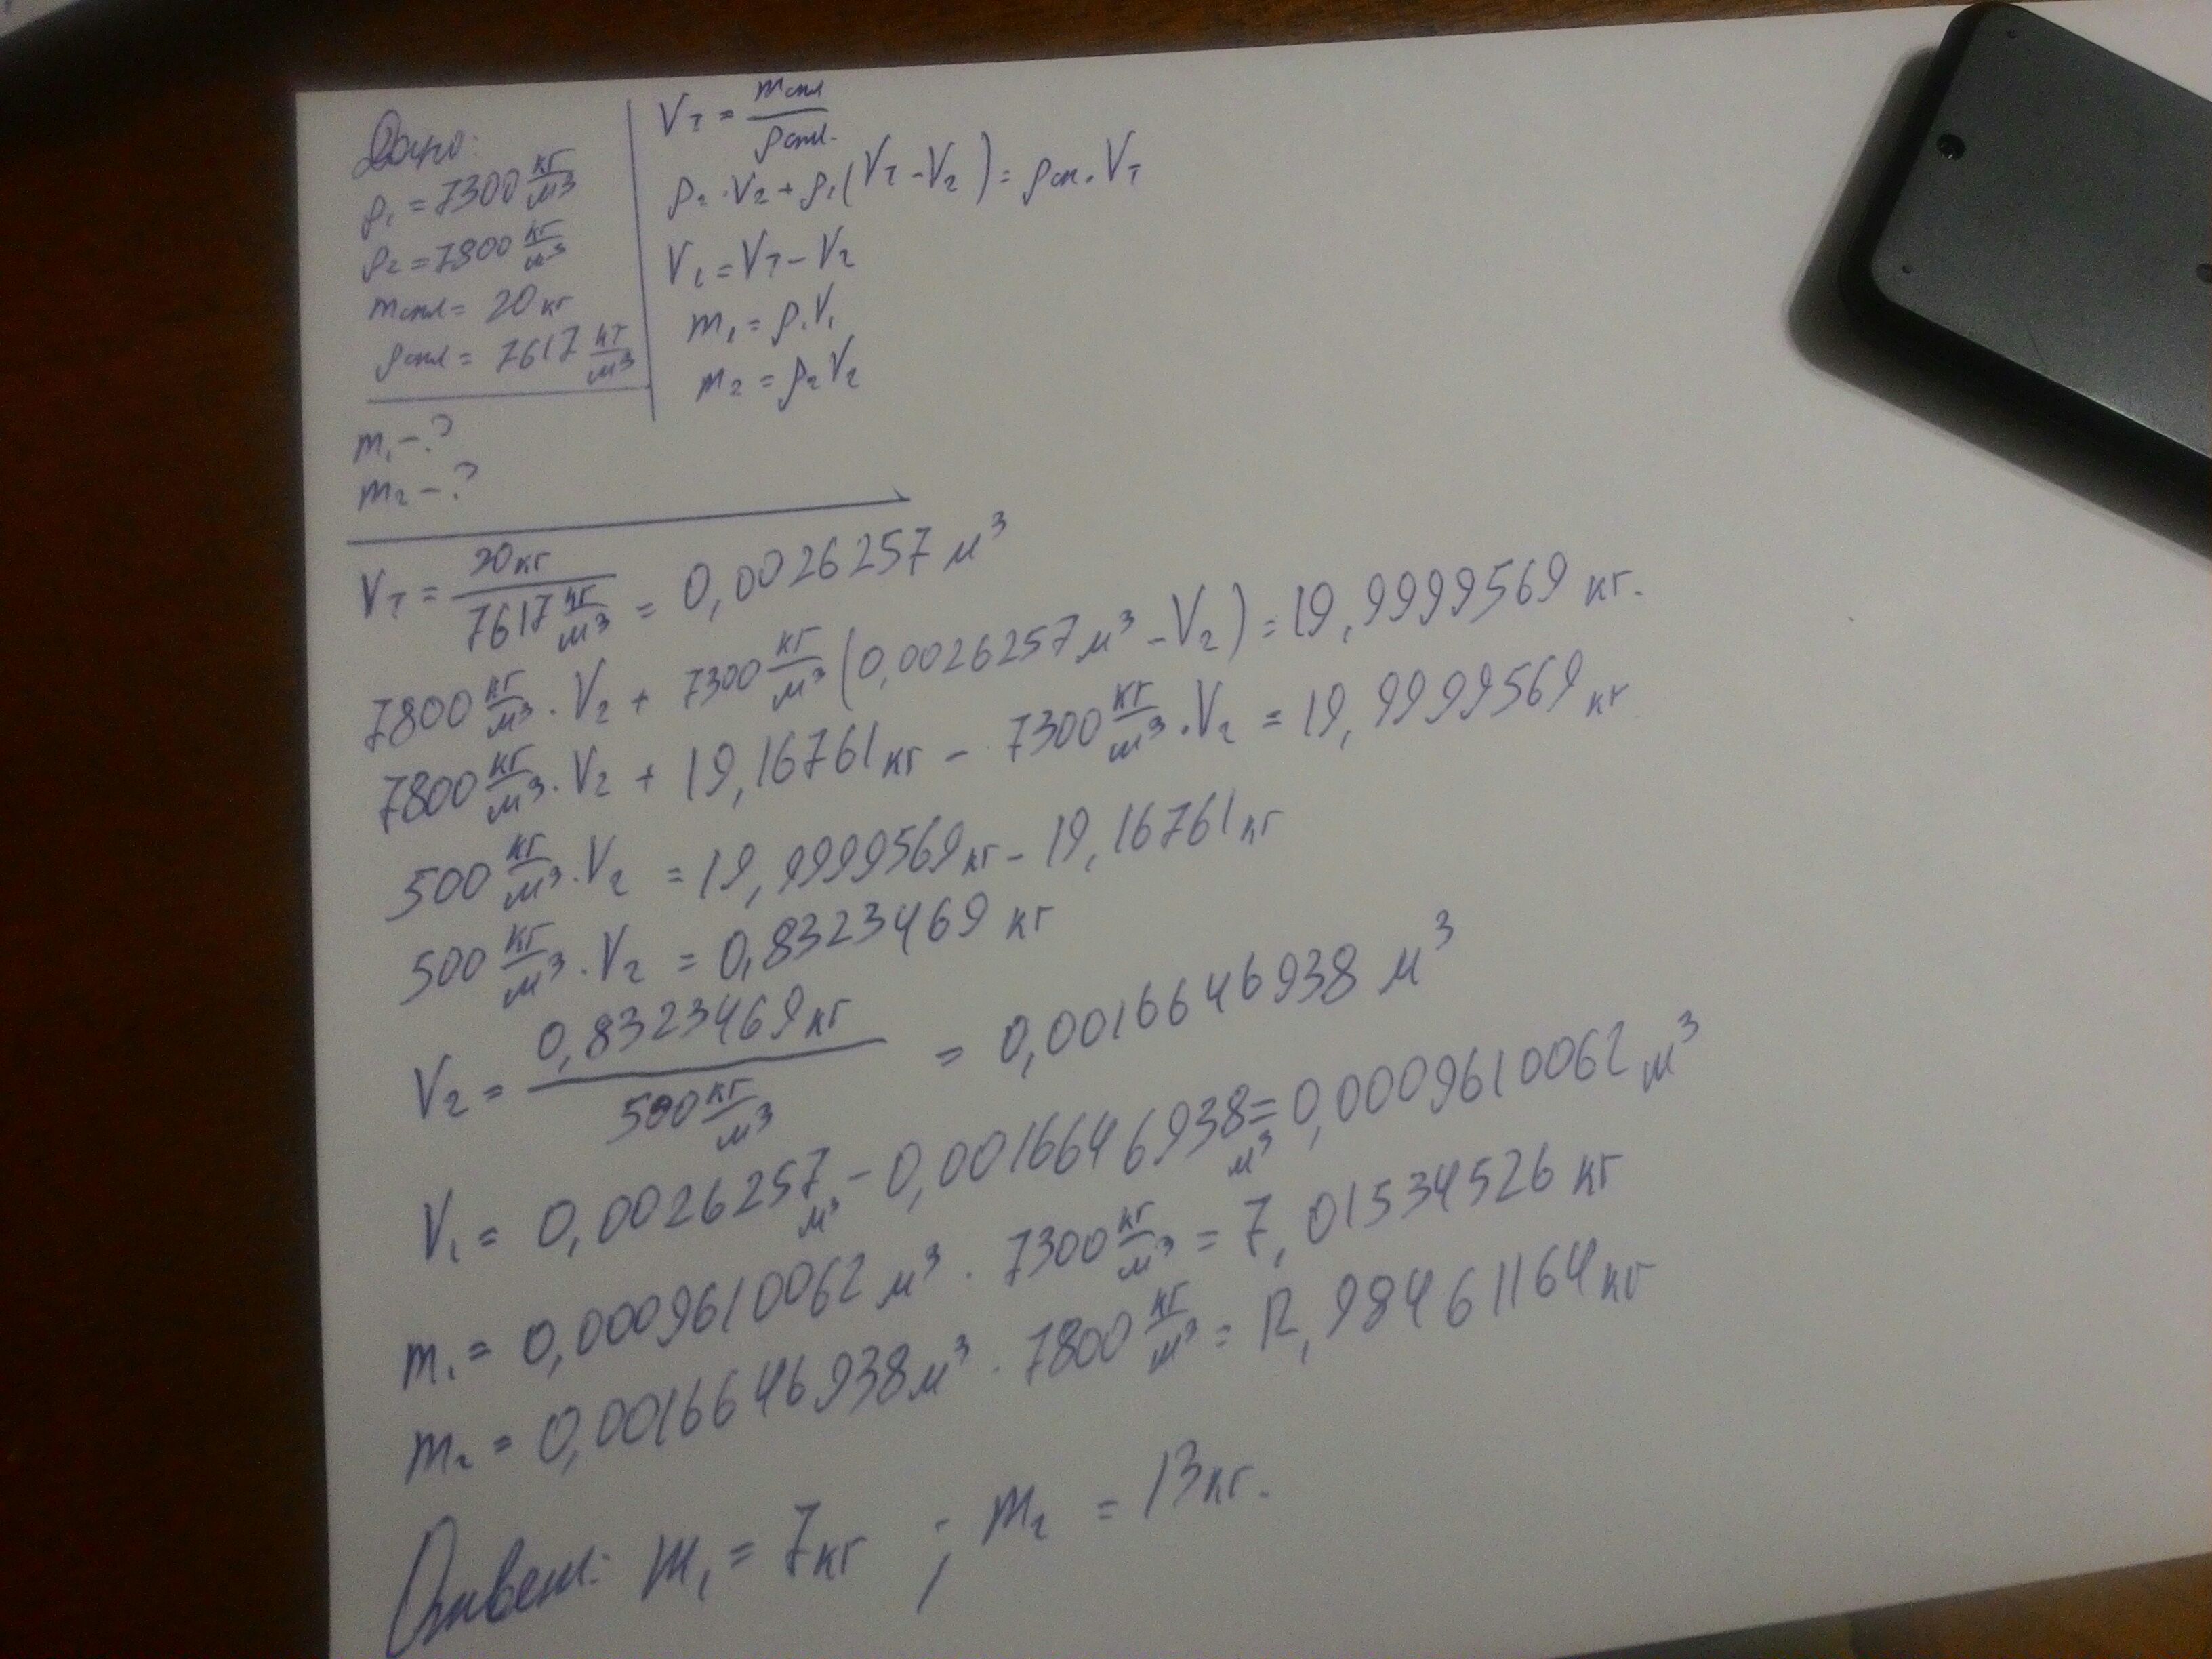 Дано:
ρ₁ = 7300 кг/м³
ρ₂ = 7800 кг/м³
mспл = 20 кг
ρспл = 7617 кг/м³
m₁ – ?
m₂ – ?
Vт = mспл / ρспл.
ρ₂ · V₂ + ρ₁(Vт – V₂) = ρсп. Vт
V₁ = Vт – V₂
m₁ = ρ₁V₁
m₂ = ρ₂V₂
Vт = 20 кг / 7617 кг/м³ = 0,0026257 м³
7800 кг/м³ · V₂ + 7300 кг/м³ (0,0026257 м³ – V₂) = 19,9999569 кг.
7800 кг/м³ · V₂ + 19,16761 кг – 7300 кг/м³ · V₂ = 19,9999569 кг
500 кг/м³ · V₂ = 19,9999569 кг – 19,16761 кг
500 кг/м³ · V₂ = 0,8323469 кг
V₂ = 0,8323469 кг / 500 кг/м³ = 0,0016646938 м³
V₁ = 0,0026257 м³ – 0,0016646938 м³ = 0,0009610062 м³
m₁ = 0,0009610062 м³ · 7300 кг/м³ = 7,01534526 кг
m₂ = 0,0016646938 м³ · 7800 кг/м³ = 12,98461164 кг
Ответ: m₁ = 7 кг ; m₂ = 13 кг.